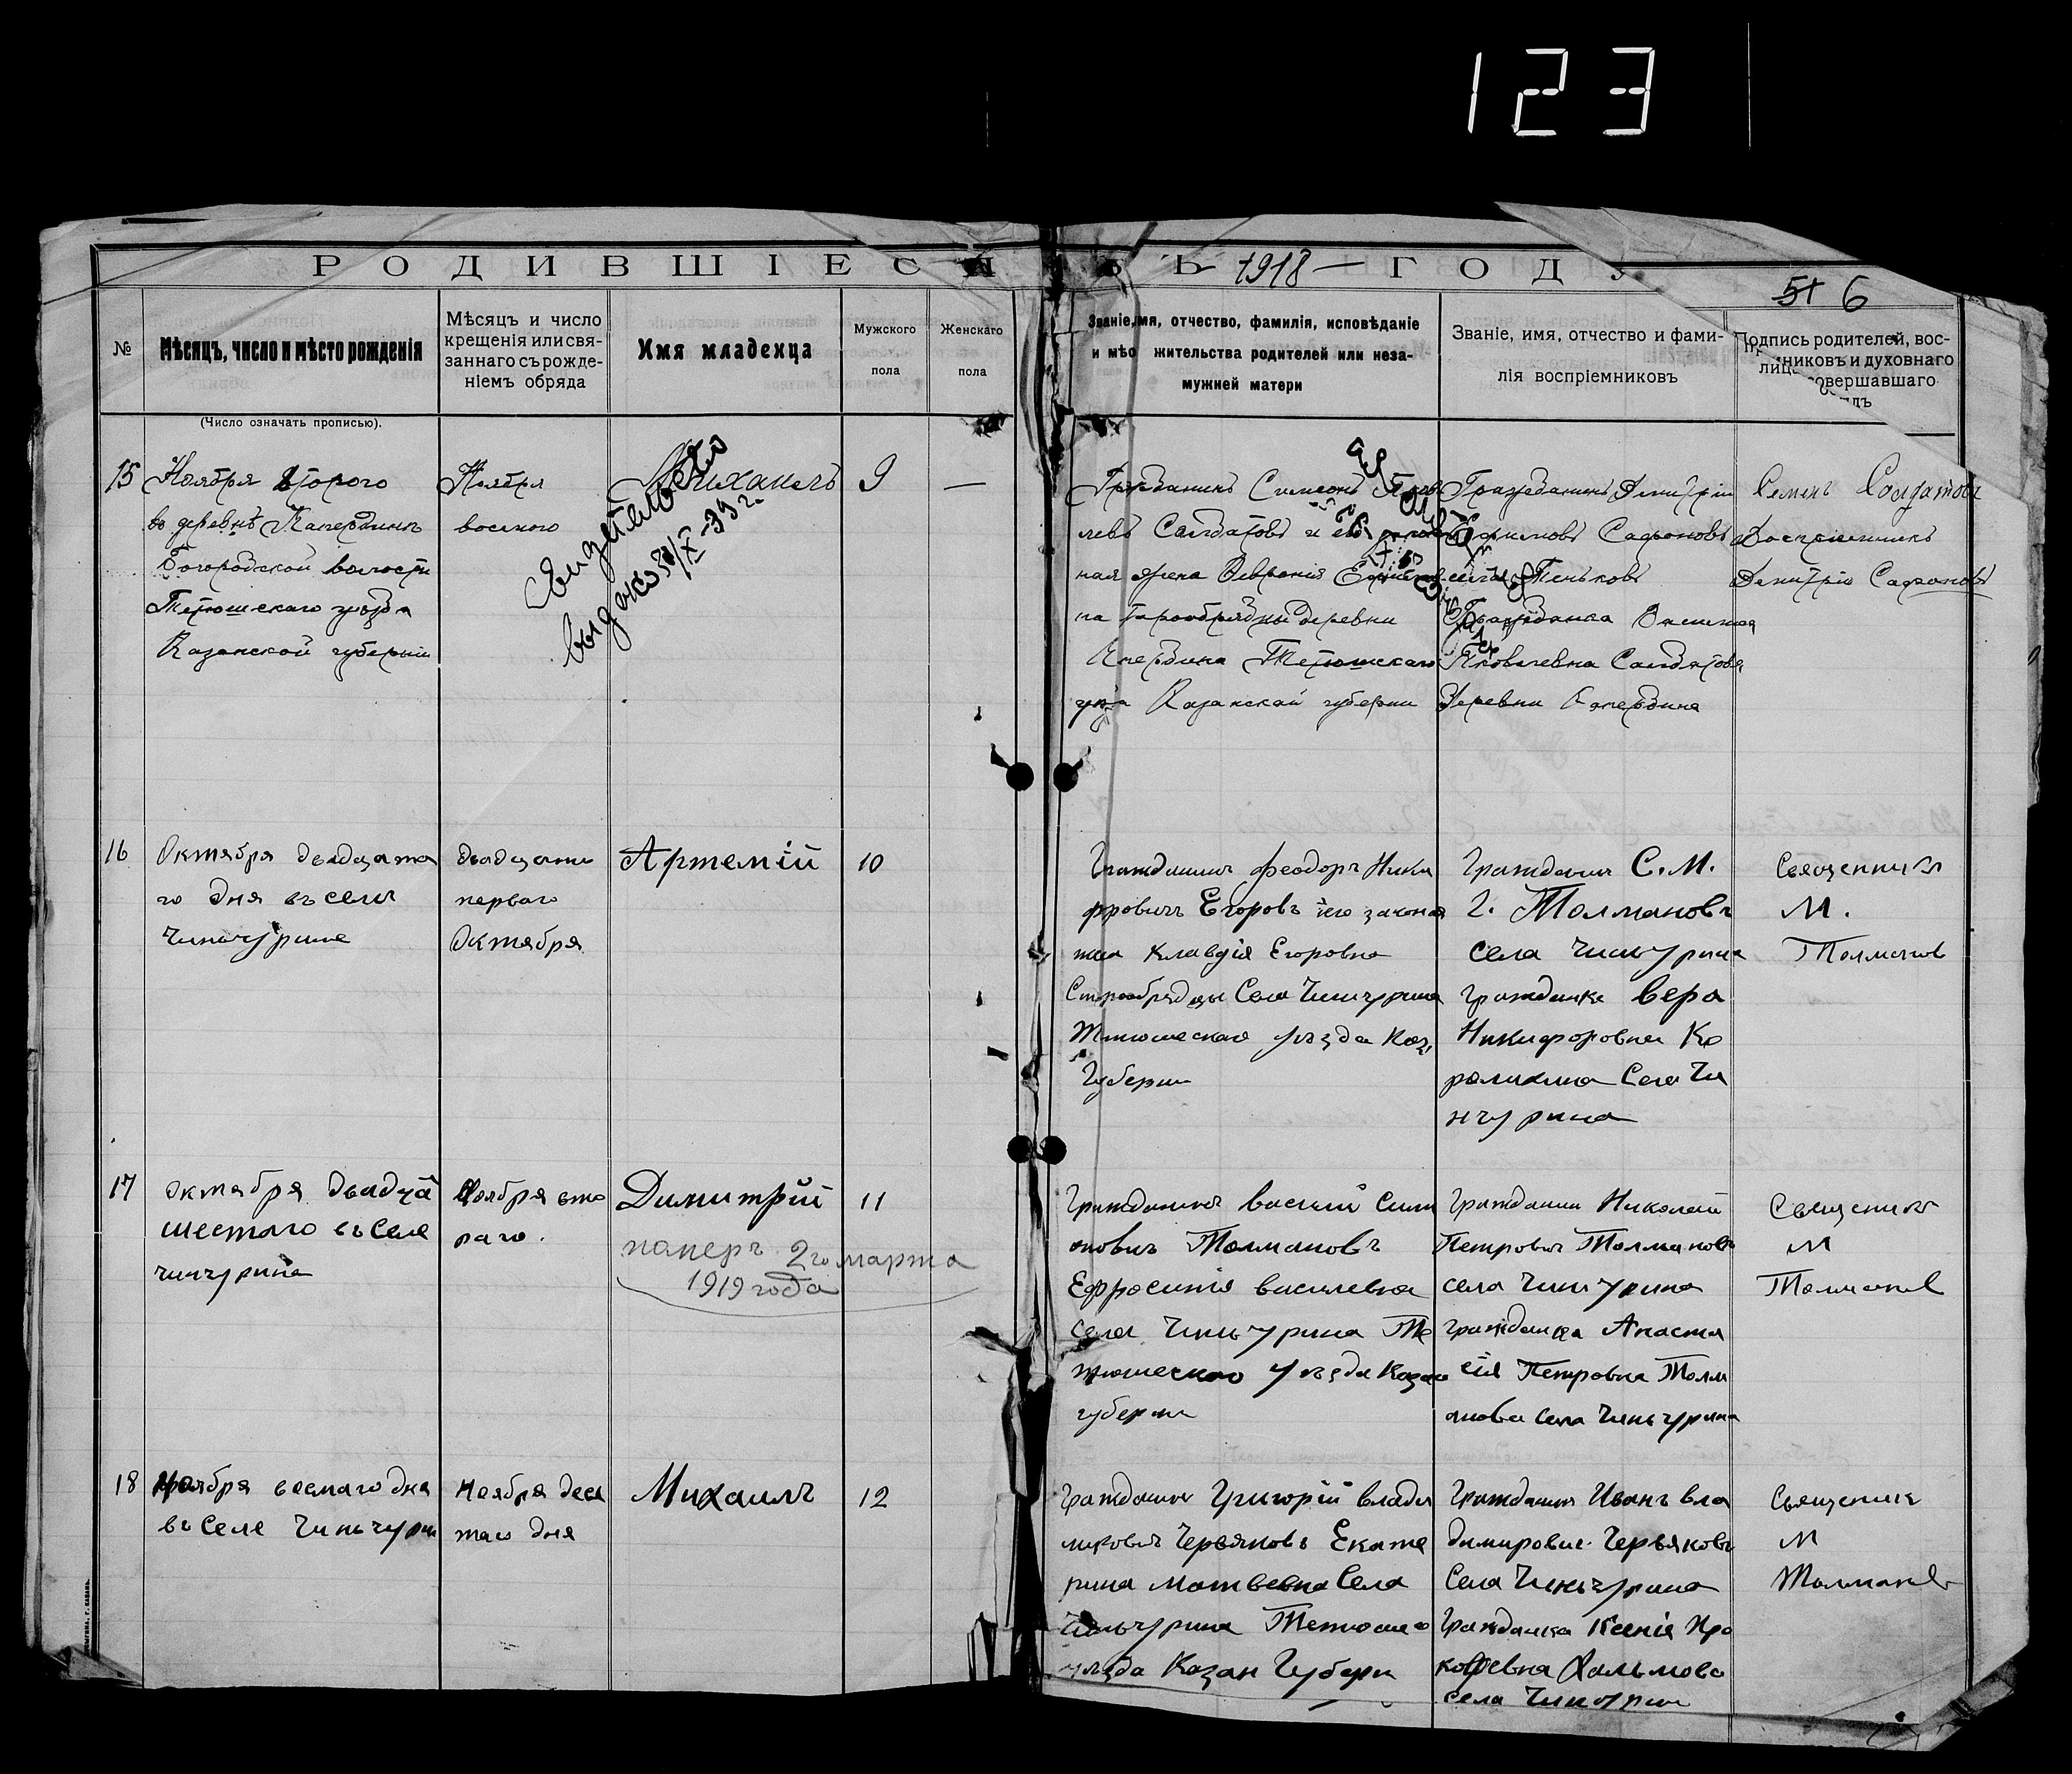 123
РОДИВШІЕСЯ ВЪ 1918 ГОДУ
51 6
№
Мѣсяцъ, число и мѣсто рожденія
Мѣсяцъ и число
крещенія или свя-
заннаго съ рожде-
ніемъ обряда
Имя младенца
Мужского
пола
Женскаго
пола
Званіе, имя, отчество, фамилія, исповѣданіе
и мѣсто жительства родителей или неза-
мужней матери
Званіе, имя, отчество и фами-
лія воспріемниковъ
Подпись родителей, вос-
никовъ и духовнаго
лица совершавшаго
(Число означать прописью).
15
Ноября второго
въ деревнѣ
Богородской волости
Тетюшскаго уѣзда
Казанской губерніи
Ноября
восмого
Михаилъ
свидѣтельство
выдано 30/IX-39 г.
9
—
Гражданинъ Симеонъ
левъ Салдатовъ и его
ная жена Февронія
на деревни
Тетюшскаго
Казанской губерни
Гражданинъ Димитрій
Ефимовъ Сафоновъ
Гражданка
Яковлевна Салдатова
Деревни
Семенъ Солдатовъ
Воспріемникъ
Димитрію Сафоновъ
16
Октября двадцата
го дня въ селѣ
Чинчурине
двадцать
перваго
Октября
Артемій
10
Гражданинъ Феодоръ Ники
форовичъ Егоровъ его закона
жна Клавдія Егоровна
Старообрядцы Села Чинчурина
Тетюшскаго уѣзда Каз.
Губерни
Гражданин С. М.
Г. Толмановъ
села Чинчурина
гражданка Вера
Никифоровна Ко
ролихина Села Чи
нчурина
Священникъ
М.
Толманов
17
Октября двадца
шестого въ Селе
чинчурина
Ноября вто
раго.
Димитрій
померъ 2го марта
1919 года
11
Гражданинъ Василий Сим
оновичъ Толмановъ
Ефросинія Василевна
села Чинчурина Те
тюшеского Уезда Казан
губерни
Гражданин Николай
Петрович Толмановъ
села Чинчурина
гражданка Анаста
сія Петровна Толм
анова села Чинчурина
Священикъ
М
Толманов
18
Ноября восмаго дня
въ Селе Чинчурин
Ноября деся
таго дня
Михаилъ
12
Гражданин Григорій Влади
мировичъ Червяковъ Екате
рина Матвеевна Села
Чинчурина Тетюшс
уѣзда Казан Губерн
Гражданин Иванъ Вла
димирович Червяковъ
Села Чинчурина
Гражданка Ксенія Про
кофевна
села Чинчурин
Священикъ
М
Толманов